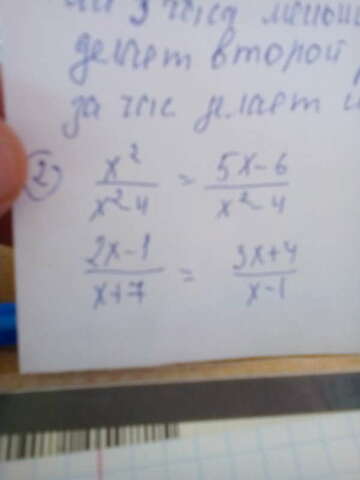 на 3 часа меньше
делает второй
за час делает
2) x²/(x²-4) = (5x-6)/(x²-4)
(2x-1)/(x+7) = (3x+4)/(x-1)